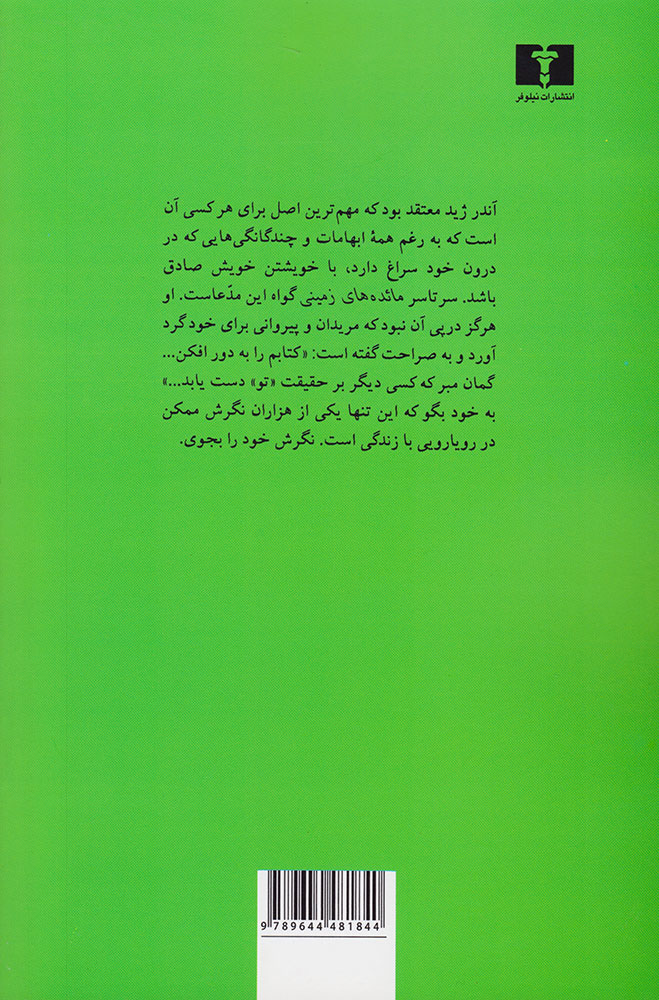 انتشارات نیلوفر
آندر ژید معتقد بود که مهم‌ترین اصل برای هر کسی آن
است که به رغم همۀ ابهامات و چندگانگی‌هایی که در
درون خود سراغ دارد، با خویشتن خویش صادق
باشد. سرتاسر مائده‌های زمینی گواه این مدّعاست. او
هرگز درپی آن نبود که مریدان و پیروانی برای خود گرد
آورد و به صراحت گفته است: «کتابم را به دور افکن...
گمان مبر که کسی دیگر بر حقیقت «تو» دست یابد...»
به خود بگو که این تنها یکی از هزاران نگرش ممکن
در رویارویی با زندگی است. نگرش خود را بجوی.
9 789644 481844